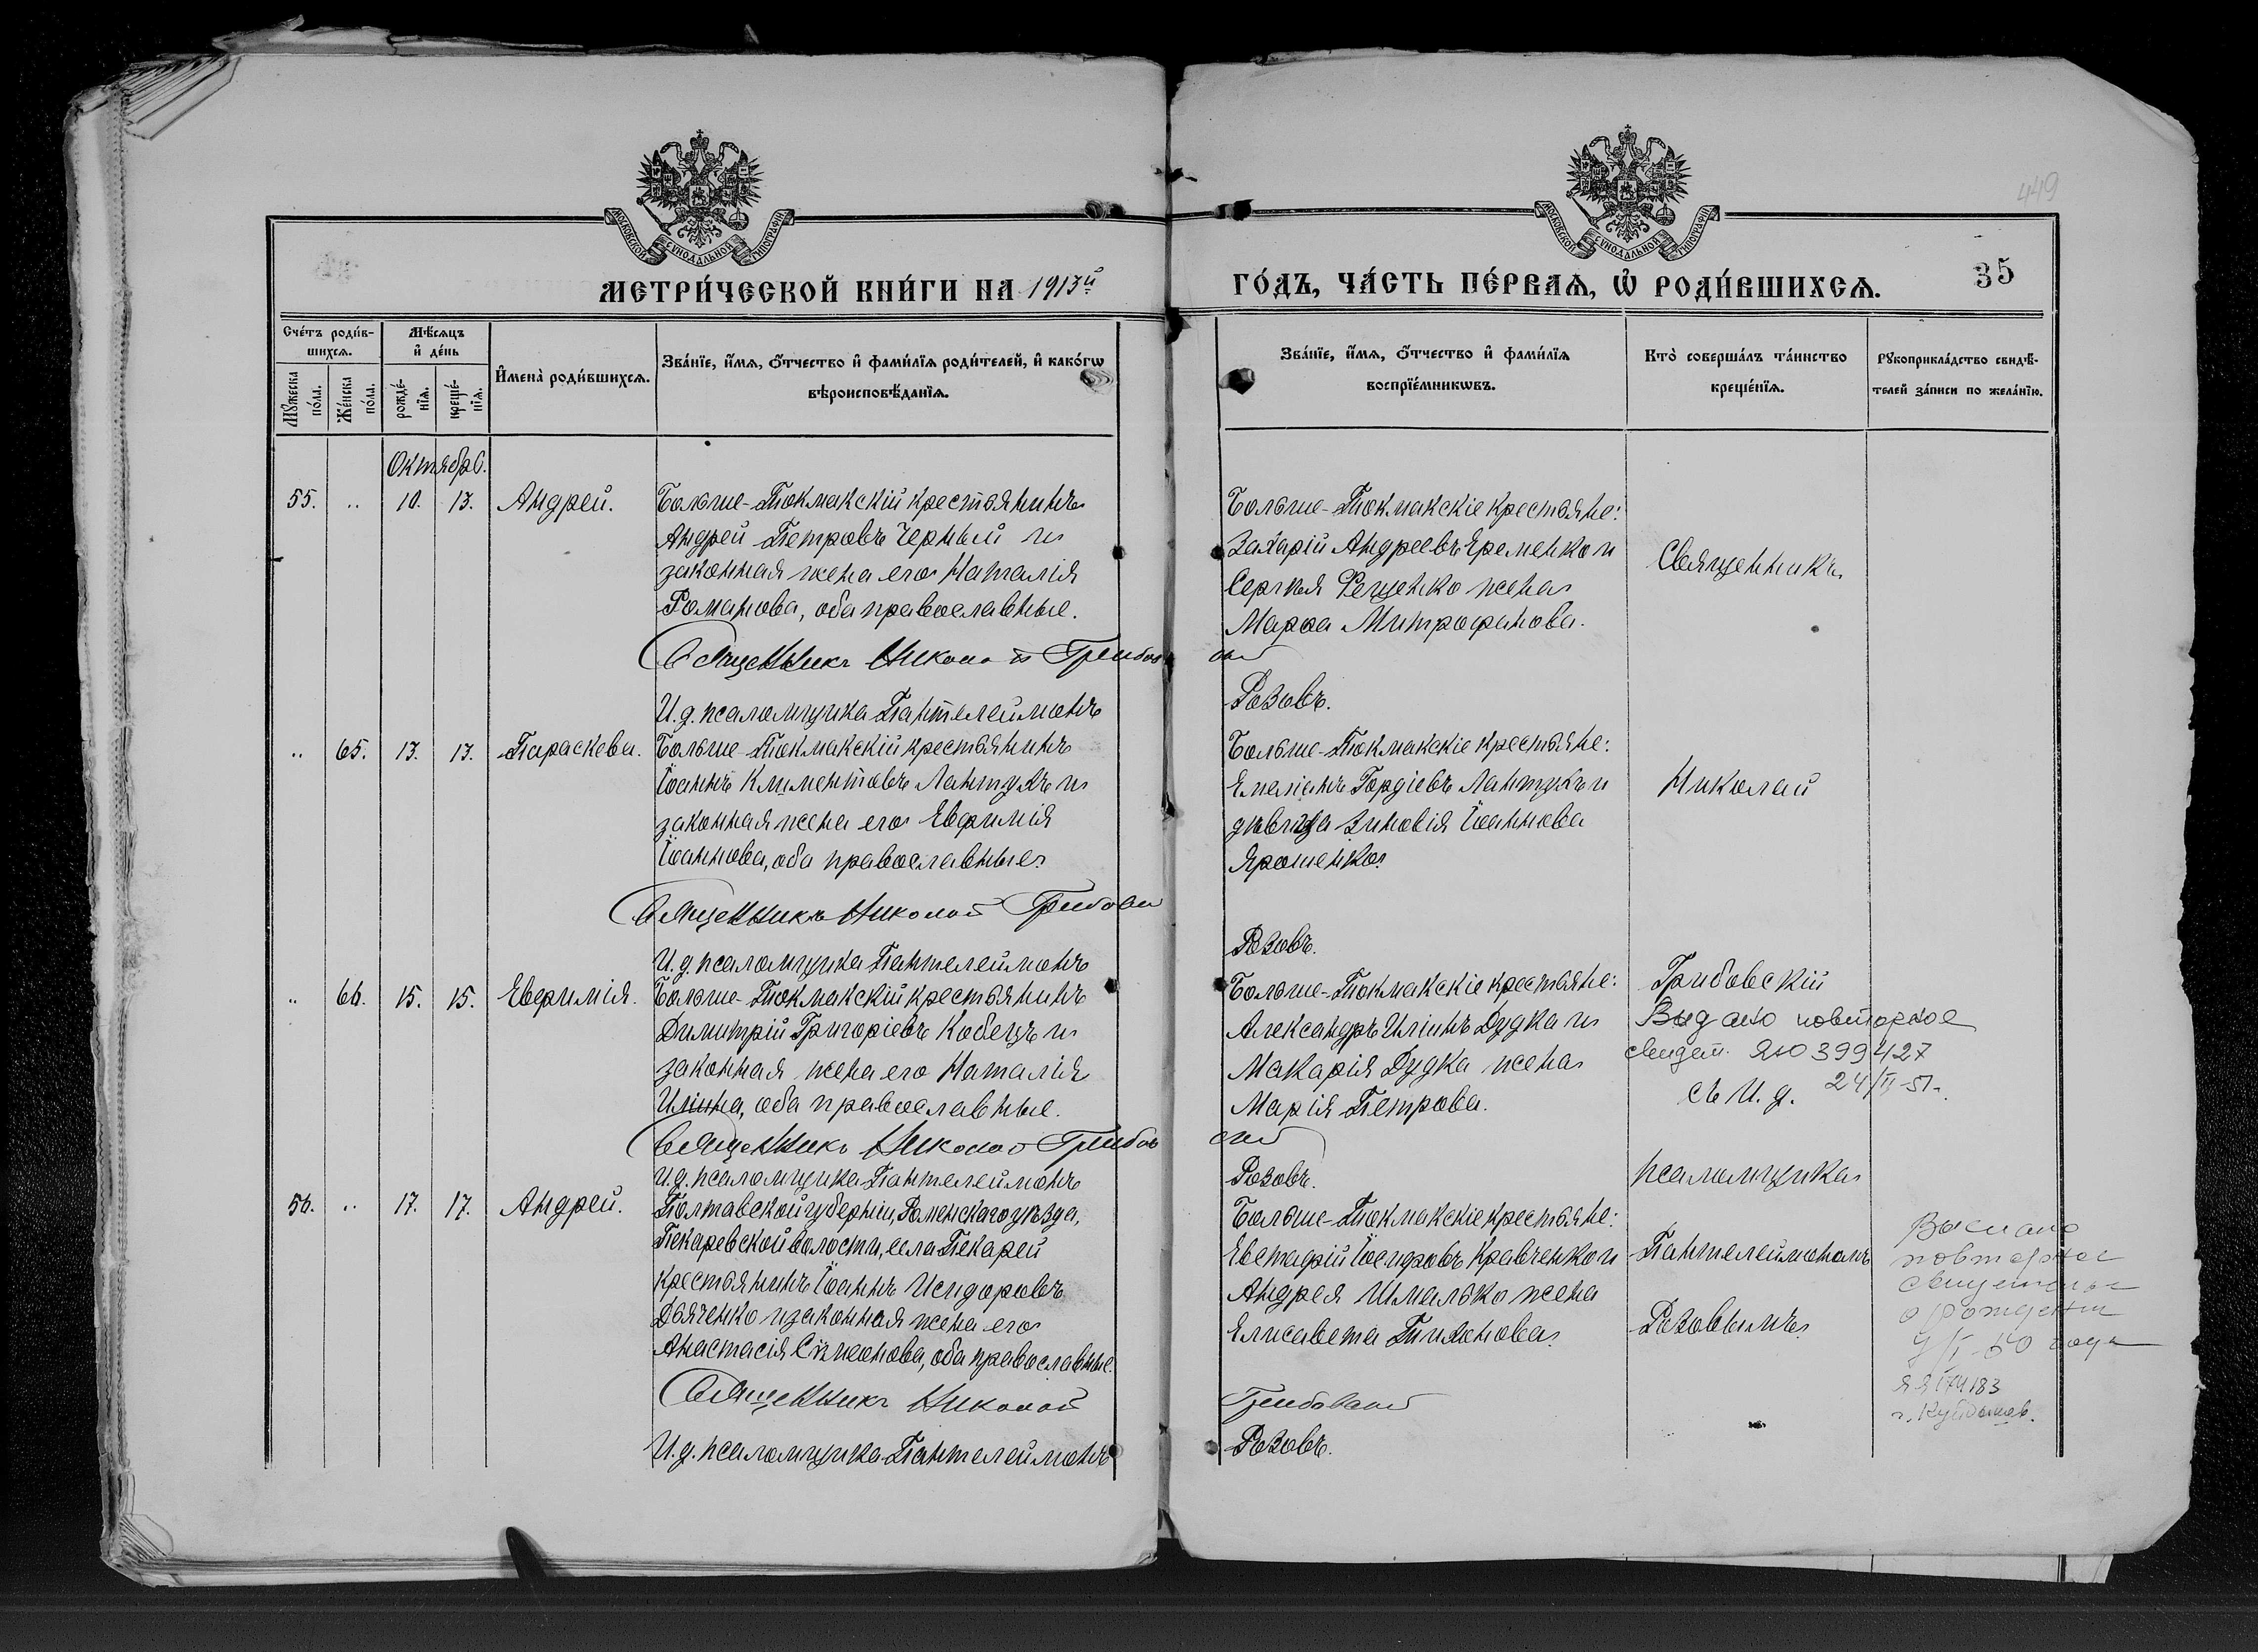 449
МОСКОВСКОЙ СѴНОДАЛЬНОЙ ТИПОГРАФІИ
МОСКОВСКОЙ СѴНОДАЛЬНОЙ ТИПОГРАФІИ
МЕТРИ́ЧЕСКОЙ КНИ́ГИ НА 1913й
ГО́ДЪ, ЧА́СТЬ ПЕ́РВАѦ, Ѡ҆ РОДИ́ВШИХСѦ.
35
Сче́тъ роди́в-
шихсѧ.
Мꙋ́жеска по́ла.
Же́нска по́ла.
Мѣ́сѧцъ
и҆ де́нь
рожде́-
нїѧ.
креще́-
нїѧ.
И҆мена̀ роди́вшихсѧ.
Зва́нїе, и҆́мѧ, ѻ҆́тчество и҆ фами́лїѧ роди́телей, и҆ како́гѡ
вѣроисповѣ́данїѧ.
Зва́нїе, и҆́мѧ, ѻ҆́тчество и҆ фами́лїѧ
воспрїе́мникѡвъ.
Кто̀ соверша́лъ та́инство
креще́нїѧ.
Рꙋкоприкла́дство свидѣ́-
телей за́писи по жела́нїю.
Октябрь.
55. „ 10. 13. Андрей.
Больше-Токмакскій крестьянинъ
Андрей Петровъ Черный и
законная жена его Наталія
Романова, оба православные.
Священникъ Николай Грибов
И.д. псаломщика Пантелеймонъ
Больше-Токмакскіе крестьяне:
Захарій Андреевъ Яременко и
Сергѣя Рещенко жена
Марѳа Митрофанова.
ский
Розовъ.
Священникъ
„ 65. 13. 13. Параскева.
Больше-Токмакскій крестьянинъ
Іоаннъ Климентовъ Лантухъ и
законная жена его Евфимія
Іоаннова, оба православные
Священникъ Николай Грибовский
И.д. псаломщика Пантелеймонъ
Больше-Токмакскіе крестьяне:
Емеліанъ Гордіевъ Лантухъ и
дѣвица Зиновія Іоаннова
Ярошенко
Розовъ.
Николай
„ 66. 15. 15. Евфимія.
Больше-Токмакскій крестьянинъ
Димитрій Григоріевъ Кобецъ и
законная жена его Наталія
Иліина, оба православные.
Священникъ Николай Грибов
И.д. псаломщика Пантелеймонъ
Больше-Токмакскіе крестьяне:
Александръ Иліинъ Дудка и
Макарія Дудка жена
Марія Петрова.
ский
Розовъ.
Грибовскій
Выдано повторное
свидет. ЯЮ 399427
24/II-51.
съ И.д.
псаломщика
56. „ 17. 17. Андрей.
Полтавской губерніи, Роменскаго уѣзда,
Пекаревской волости, села Пекарей
крестьянинъ Іоаннъ Исидоровъ
Дьяченко и законная жена его
Анастасія Симеонова, оба православные.
Священникъ Николай
И.д. псаломщика Пантелеймонъ
Больше-Токмакскіе крестьяне:
Евстафій Іосифовъ Кравченко и
Андрея Шмалько жена
Елисавета Тихонова.
Грибовский
Розовъ.
Пантелеймономъ
Розовымъ.
Выслано
повторное
о рождении
50 года
г. Куйбышев.